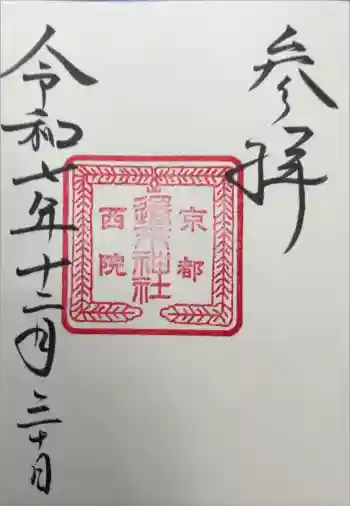 参拝
京都
西院
春日神社
令和七年十二月三十日